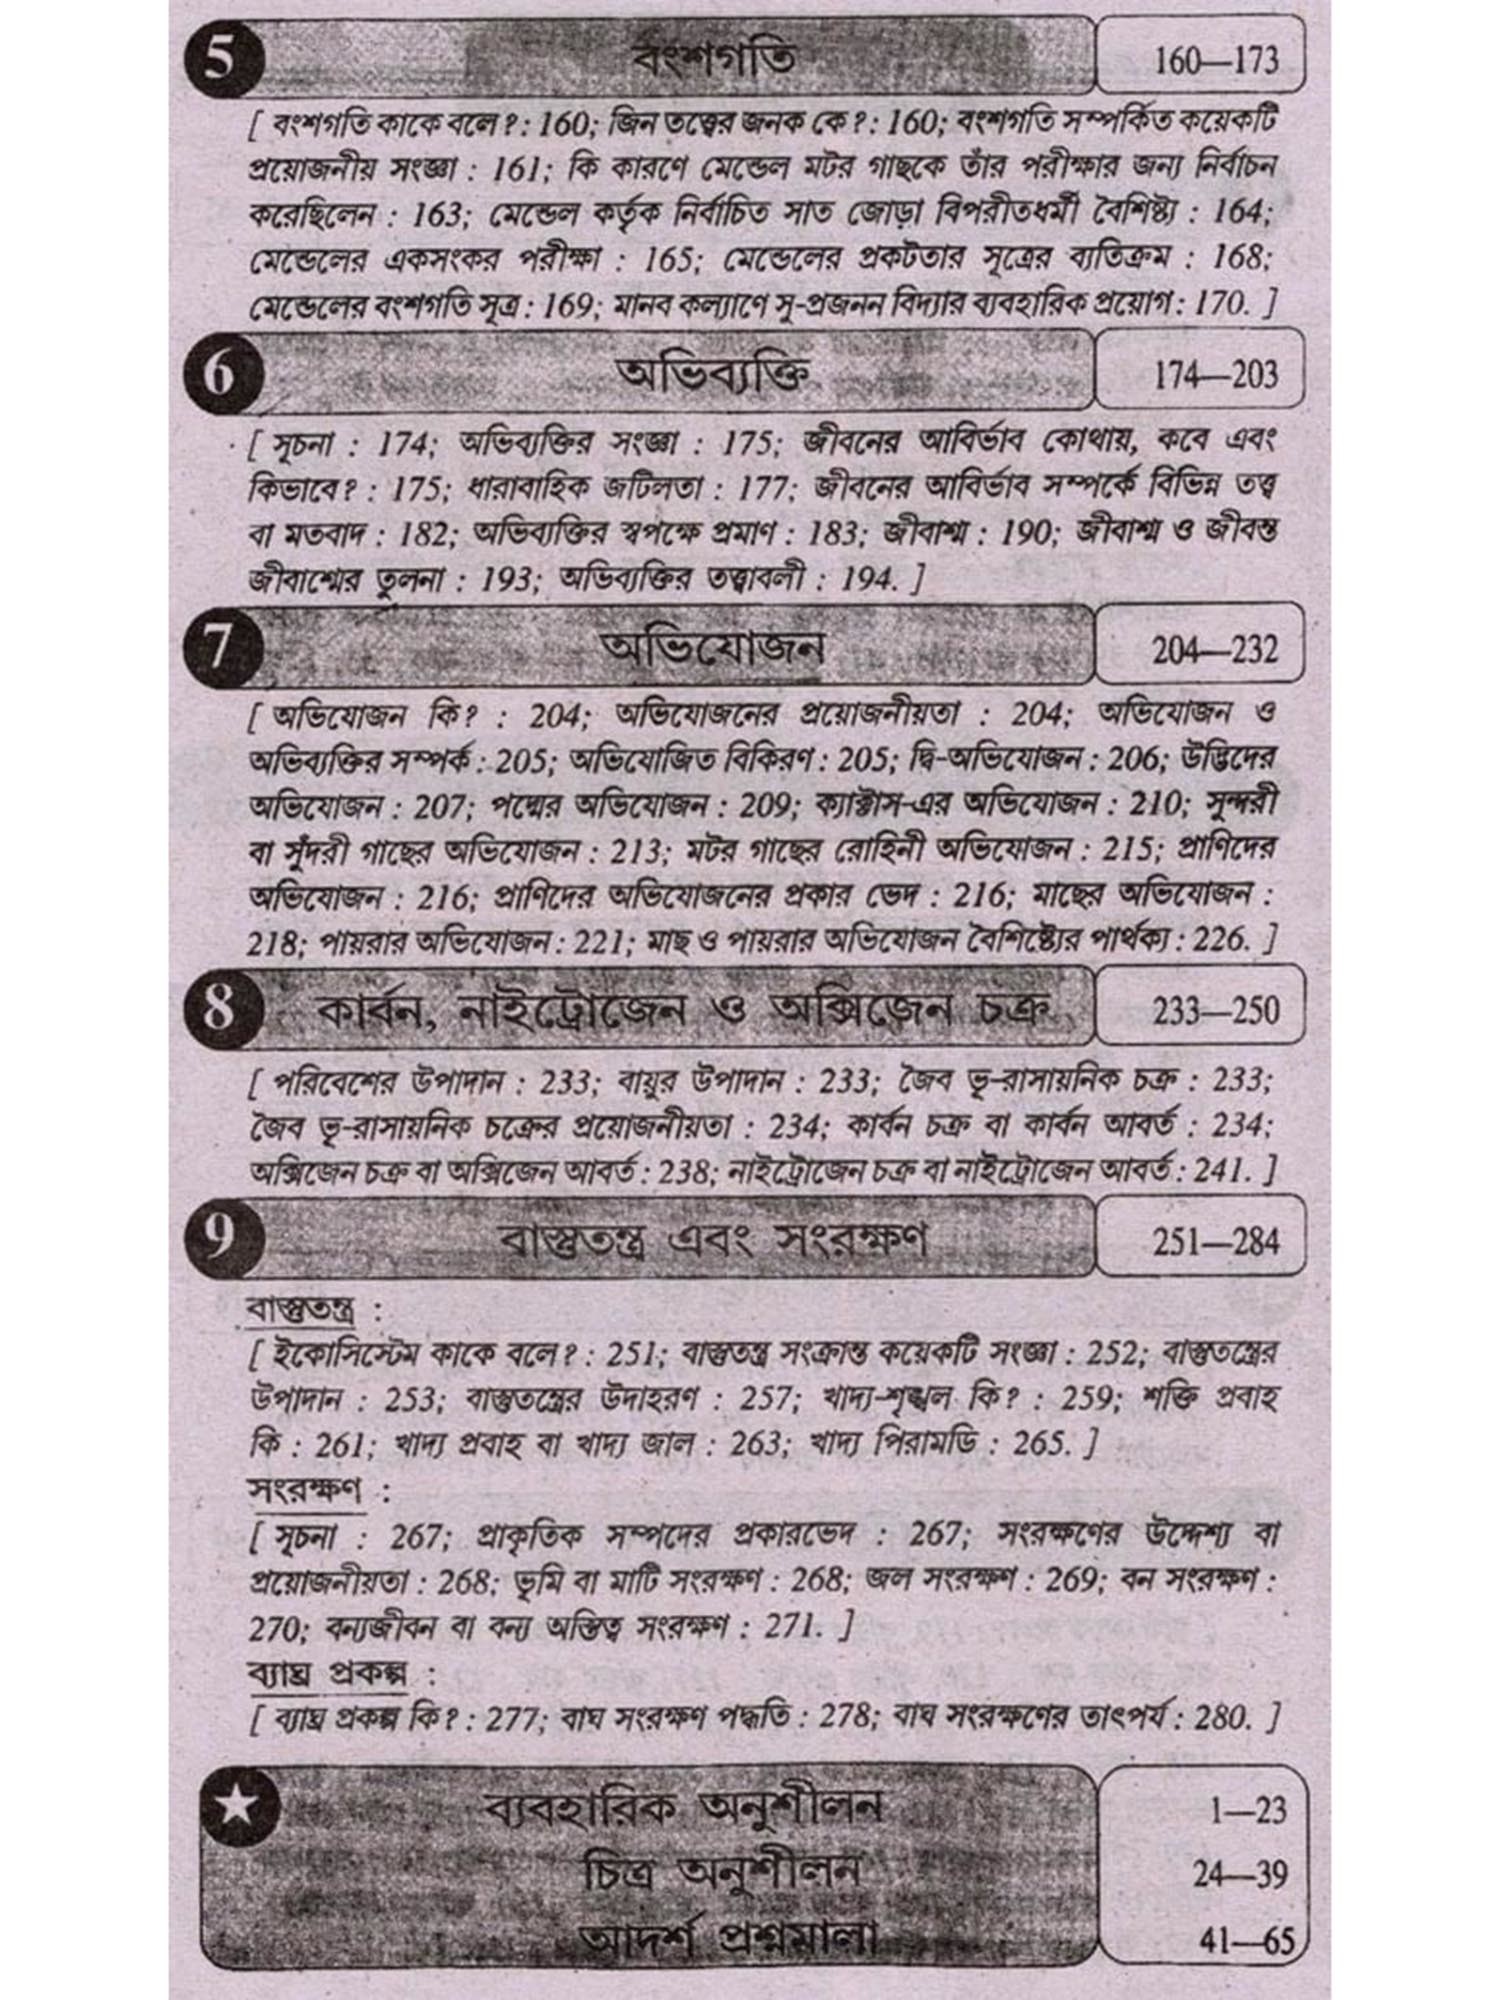 5 বংশগতি 160—173
[ বংশগতি কাকে বলে? : 160; জিন তত্ত্বের জনক কে? : 160; বংশগতি সম্পর্কিত কয়েকটি
প্রয়োজনীয় সংজ্ঞা : 161; কি কারণে মেন্ডেল মটর গাছকে তাঁর পরীক্ষার জন্য নির্বাচন
করেছিলেন : 163; মেন্ডেল কর্তৃক নির্বাচিত সাত জোড়া বিপরীতধর্মী বৈশিষ্ট্য : 164;
মেন্ডেলের একসংকর পরীক্ষা : 165; মেন্ডেলের প্রকটতার সূত্রের ব্যতিক্রম : 168;
মেন্ডেলের বংশগতি সূত্র : 169; মানব কল্যাণে সু-প্রজনন বিদ্যার ব্যবহারিক প্রয়োগ : 170. ]
6 অভিব্যক্তি 174—203
[ সূচনা : 174; অভিব্যক্তির সংজ্ঞা : 175; জীবনের আবির্ভাব কোথায়, কবে এবং
কিভাবে? : 175; ধারাবাহিক জটিলতা : 177; জীবনের আবির্ভাব সম্পর্কে বিভিন্ন তত্ত্ব
বা মতবাদ : 182; অভিব্যক্তির স্বপক্ষে প্রমাণ : 183; জীবাশ্ম : 190; জীবাশ্ম ও জীবন্ত
জীবাশ্মের তুলনা : 193; অভিব্যক্তির তত্ত্বাবলী : 194. ]
7 অভিযোজন 204—232
[ অভিযোজন কি? : 204; অভিযোজনের প্রয়োজনীয়তা : 204; অভিযোজন ও
অভিব্যক্তির সম্পর্ক : 205; অভিযোজিত বিকিরণ : 205; দ্বি-অভিযোজন : 206; উদ্ভিদের
অভিযোজন : 207; পদ্মের অভিযোজন : 209; ক্যাক্টাস-এর অভিযোজন : 210; সুন্দরী
বা সুঁদরী গাছের অভিযোজন : 213; মটর গাছের রোহিনী অভিযোজন : 215; প্রাণিদের
অভিযোজন : 216; প্রাণিদের অভিযোজনের প্রকার ভেদ : 216; মাছের অভিযোজন :
218; পায়রার অভিযোজন : 221; মাছ ও পায়রার অভিযোজন বৈশিষ্ট্যের পার্থক্য : 226. ]
8 কার্বন, নাইট্রোজেন ও অক্সিজেন চক্র 233—250
[ পরিবেশের উপাদান : 233; বায়ুর উপাদান : 233; জৈব ভূ-রাসায়নিক চক্র : 233;
জৈব ভূ-রাসায়নিক চক্রের প্রয়োজনীয়তা : 234; কার্বন চক্র বা কার্বন আবর্ত : 234;
অক্সিজেন চক্র বা অক্সিজেন আবর্ত : 238; নাইট্রোজেন চক্র বা নাইট্রোজেন আবর্ত : 241. ]
9 বাস্তুতন্ত্র এবং সংরক্ষণ 251—284
বাস্তুতন্ত্র :
[ ইকোসিস্টেম কাকে বলে? : 251; বাস্তুতন্ত্র সংক্রান্ত কয়েকটি সংজ্ঞা : 252; বাস্তুতন্ত্রের
উপাদান : 253; বাস্তুতন্ত্রের উদাহরণ : 257; খাদ্য-শৃঙ্খল কি? : 259; শক্তি প্রবাহ
কি : 261; খাদ্য প্রবাহ বা খাদ্য জাল : 263; খাদ্য পিরামিড : 265. ]
সংরক্ষণ :
[ সূচনা : 267; প্রাকৃতিক সম্পদের প্রকারভেদ : 267; সংরক্ষণের উদ্দেশ্য বা
প্রয়োজনীয়তা : 268; ভূমি বা মাটি সংরক্ষণ : 268; জল সংরক্ষণ : 269; বন সংরক্ষণ :
270; বন্যজীবন বা বন্য অস্তিত্ব সংরক্ষণ : 271. ]
ব্যাঘ্র প্রকল্প :
[ ব্যাঘ্র প্রকল্প কি? : 277; বাঘ সংরক্ষণ পদ্ধতি : 278; বাঘ সংরক্ষণের তাৎপর্য : 280. ]
ব্যবহারিক অনুশীলন 1—23
চিত্র অনুশীলন 24—39
আদর্শ প্রশ্নমালা 41—65